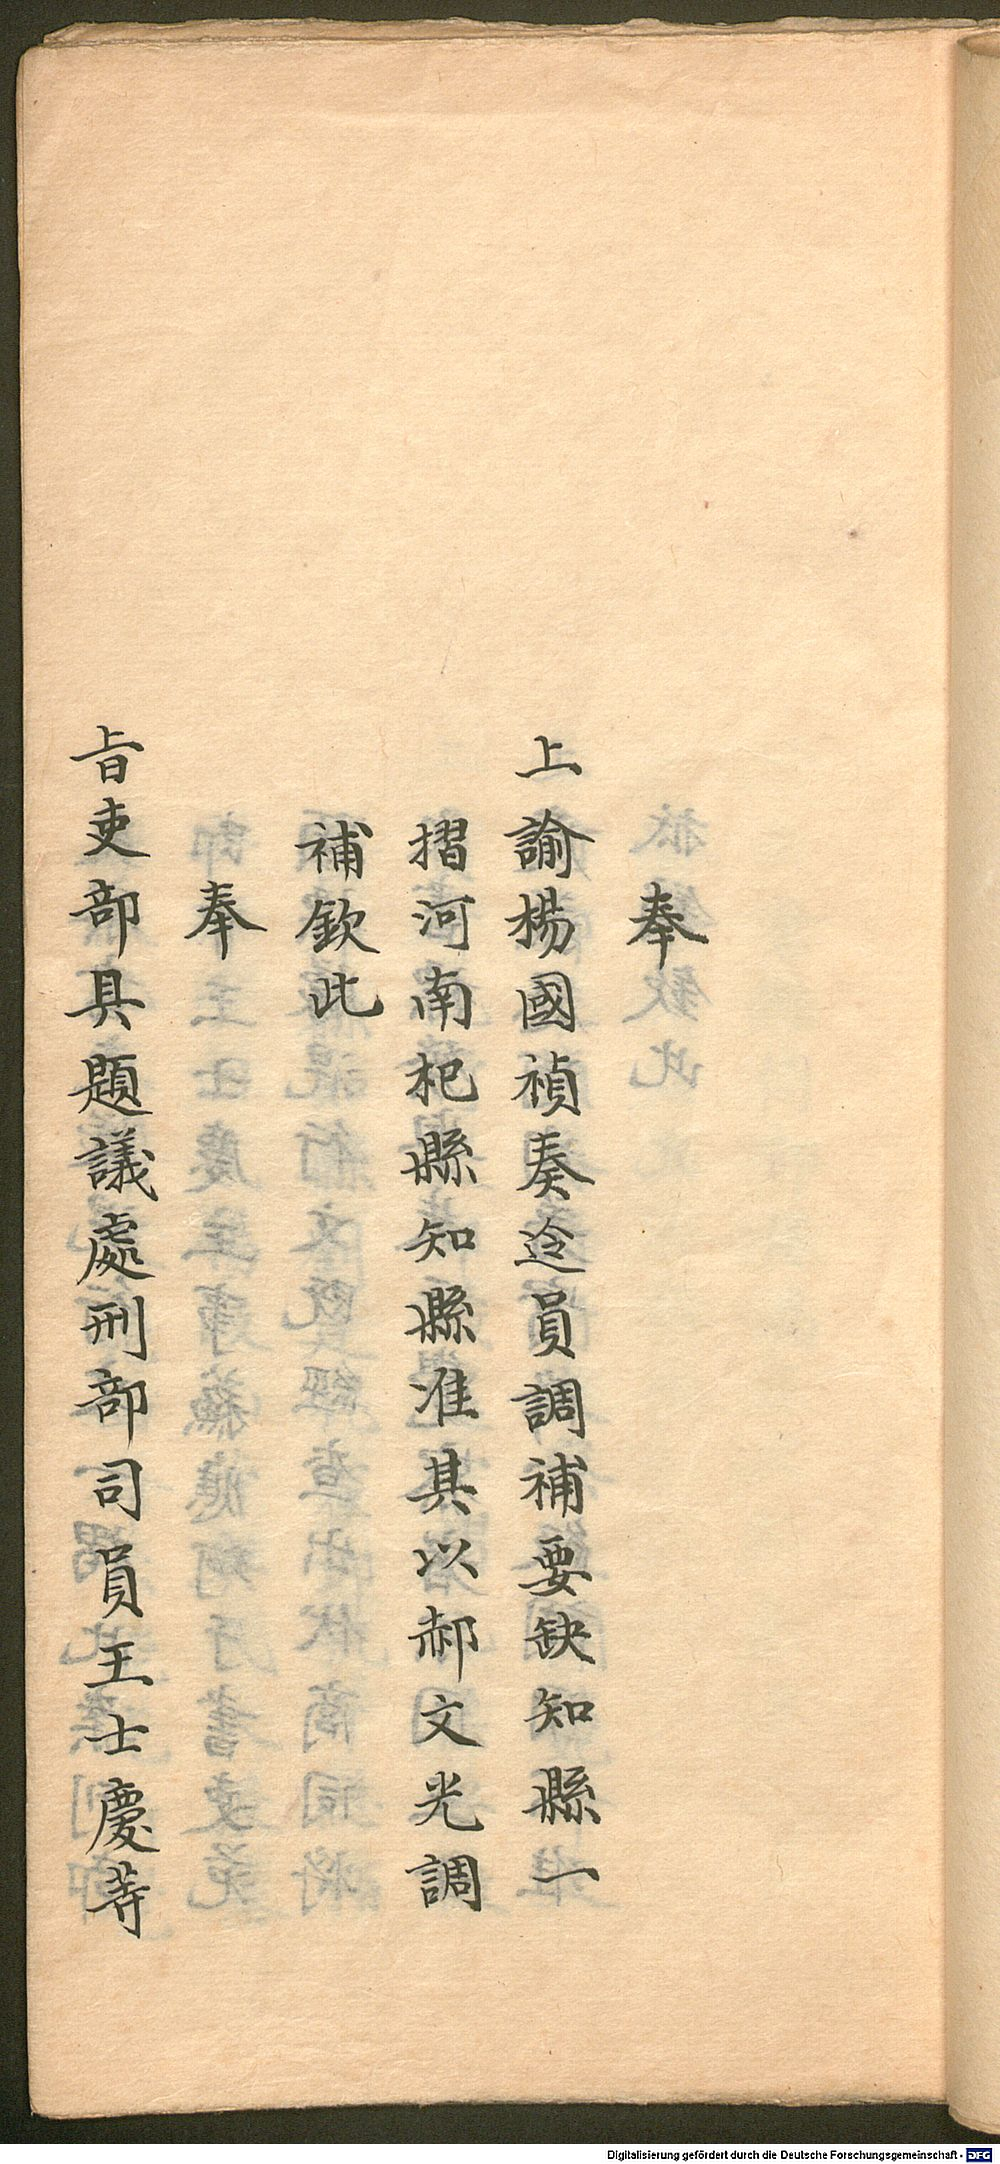 奉
上諭楊國楨奏遴員調補要缺知縣一
摺河南杞縣知縣准其以郝文光調
補欽此
奉
旨吏部具題議處刑部司員王士慶等
Digitalisierung gefördert durch die Deutsche Forschungsgemeinschaft - DFG